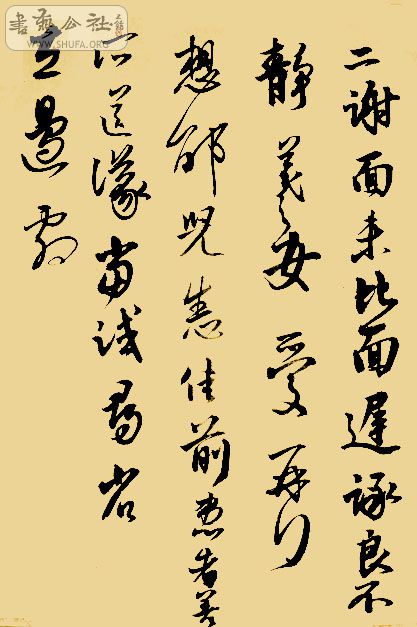 書法公社
WWW.SHUFA.ORG
二謝面未比面遲詠良不
靜羲之女愛再拜
想邵兒悉佳前患者善
所送議當試尋省
左邊劇